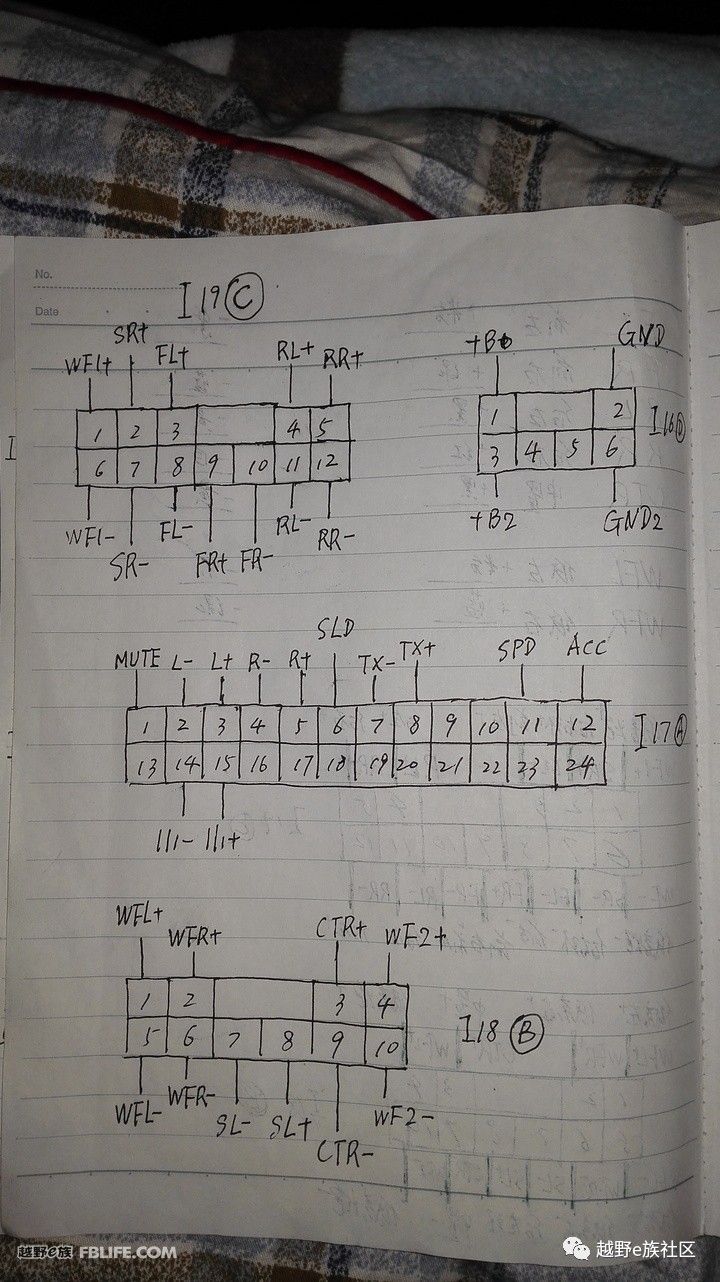 No.
Date
I19 C
SR+
WF1+ FL+ RL+ RR+
1 2 3 4 5
6 7 8 9 10 11 12
WF1- FL- RL- RR-
SR- FR+ FR-
+B GND
1 2
3 4 5 6
I16 D
+B2 GND2
SLD
MUTE L- L+ R- R+ TX- TX+ SPD ACC
1 2 3 4 5 6 7 8 9 10 11 12
13 14 15 16 17 18 19 20 21 22 23 24
I17 A
WFL+ WFR+ CTR+ WF2+
1 2 3 4
5 6 7 8 9 10
I18 B
WFL- WFR- SL- SL+ WF2-
CTR-
越野e族 FBLIFE.COM
越野e族社区